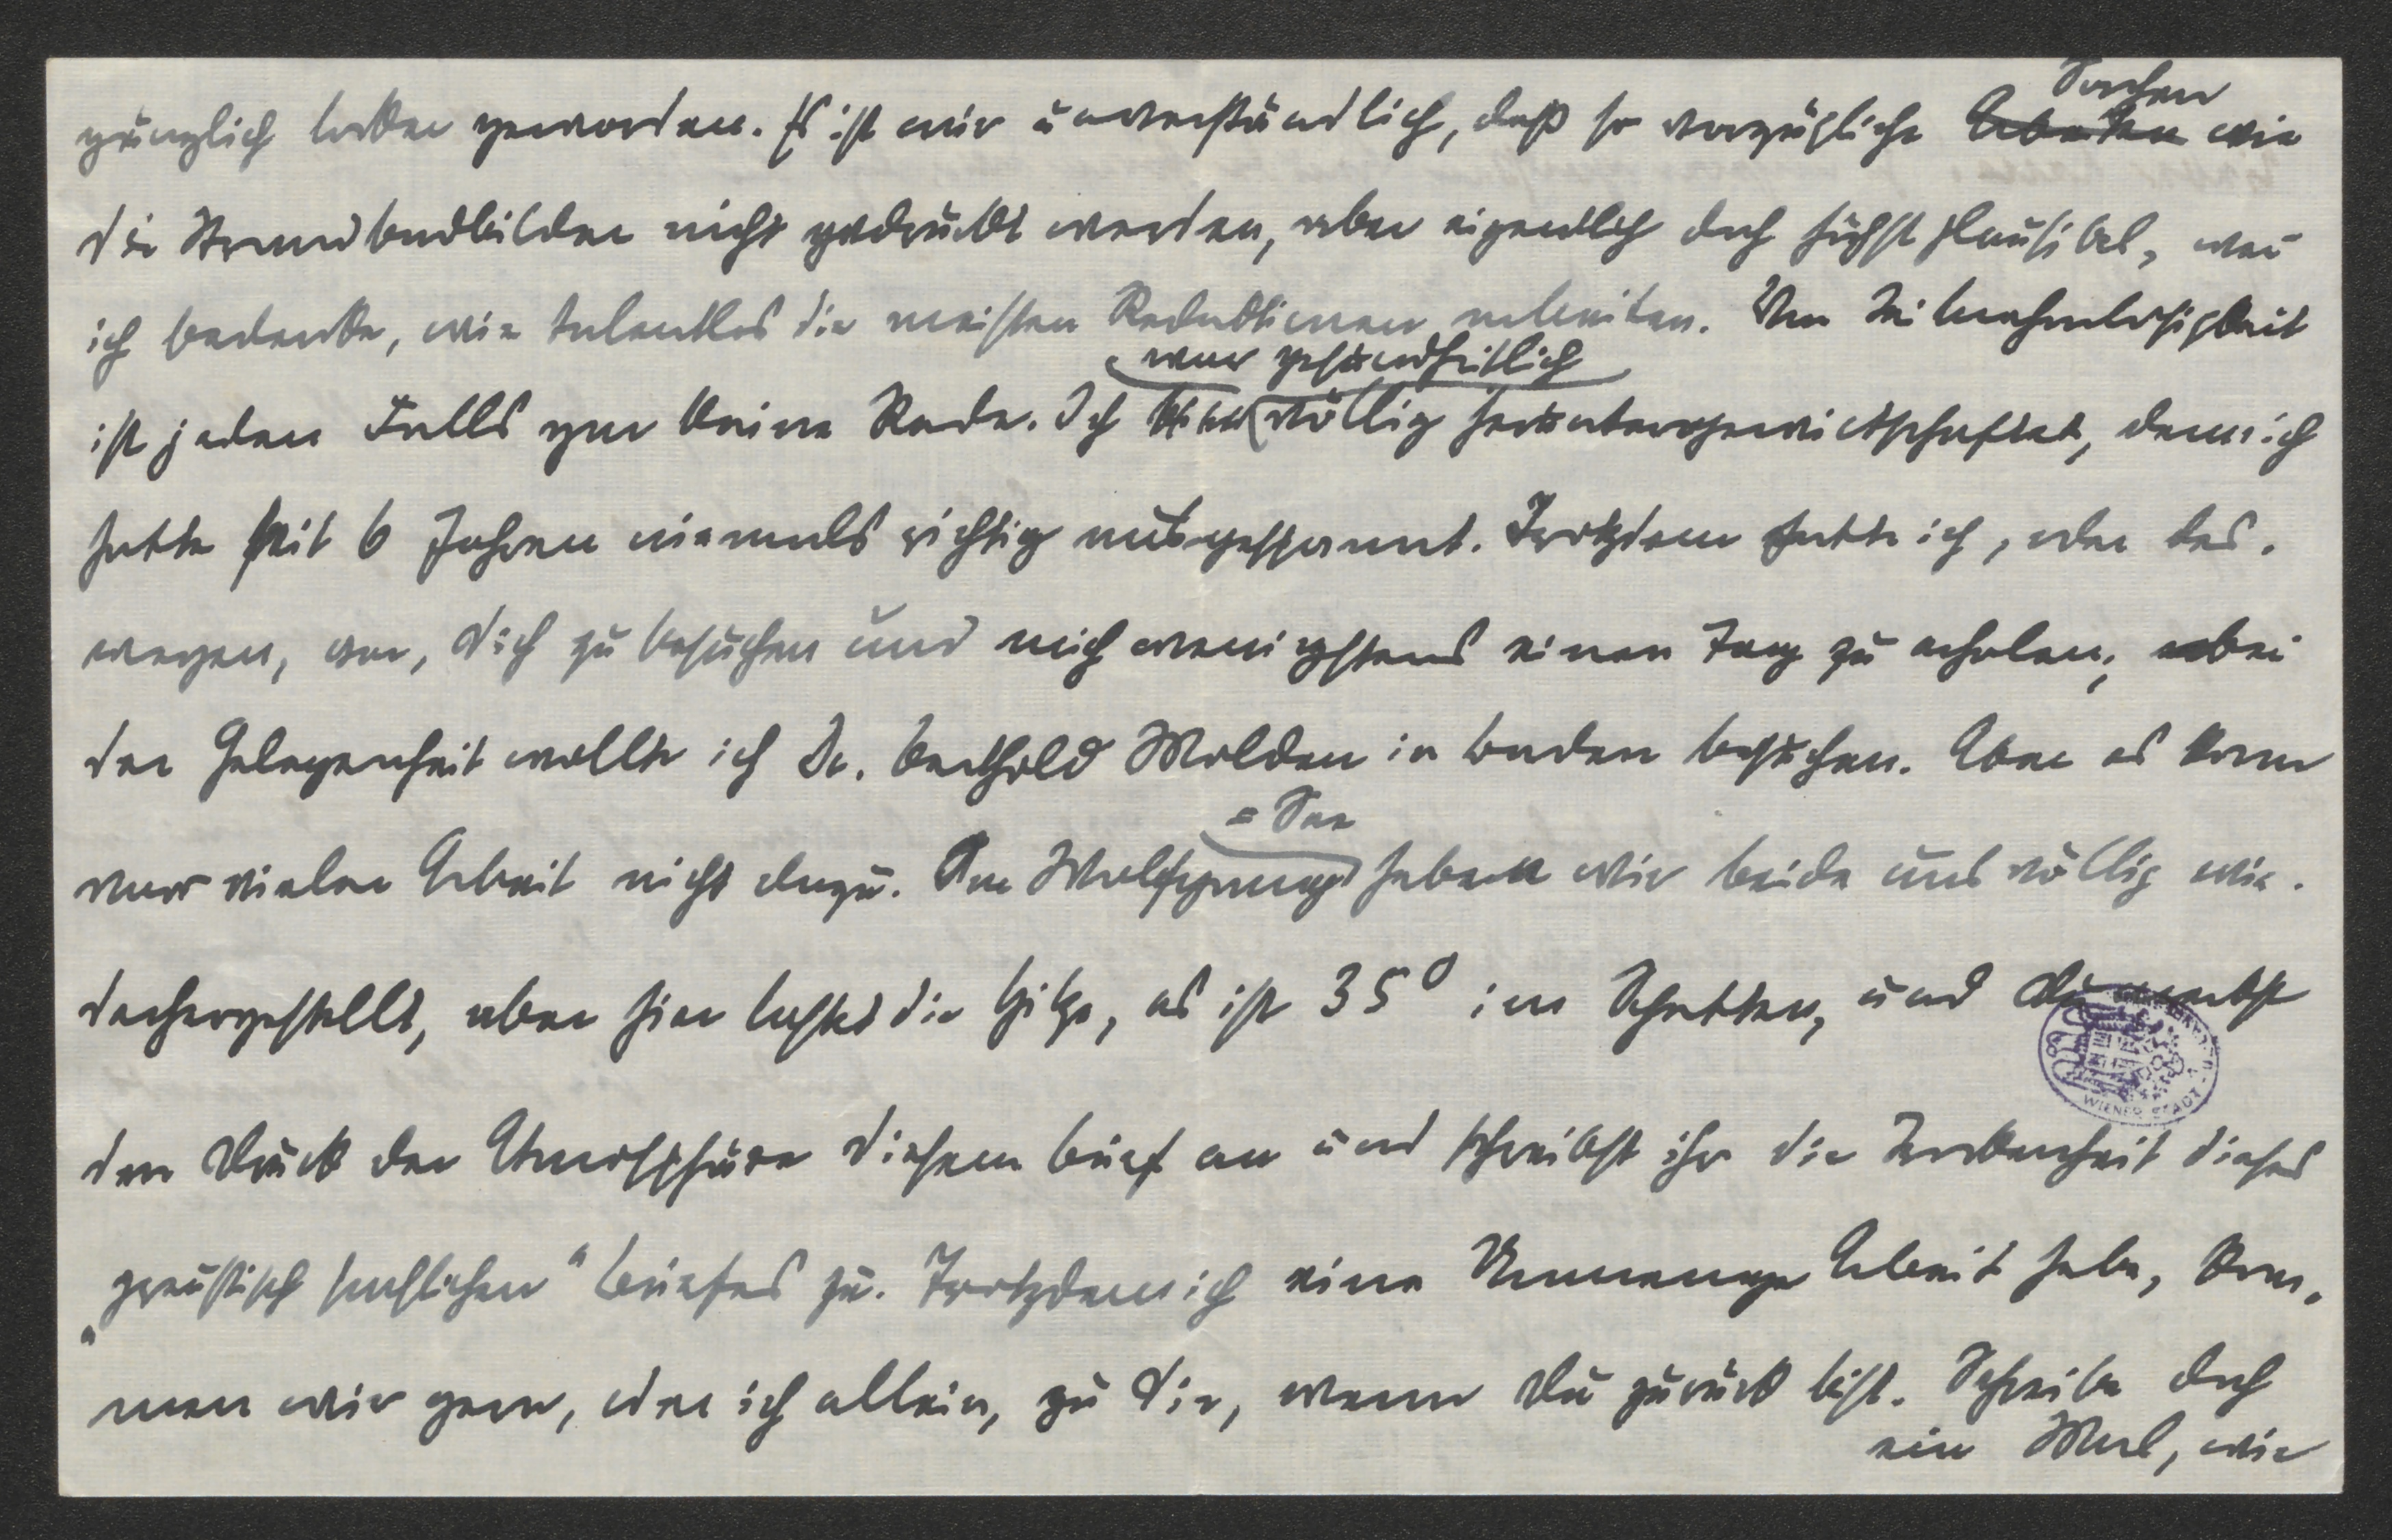 gänzlich locker geworden. Es ist mir unverständlich, daß so vorzügliche Sachen wie
die Strandbadbilder nicht gedruckt werden, aber eigentlich doch höchst plausibel, wen
ich bedenke, wie talentlos die meisten Redaktionen arbeiten. Von Teilnahmslosigkeit
ist jeden Falls gar keine Rede. Ich war gesundheitlich völlig heruntergewirtschaftet, denn ich
hatte seit 6 Jahren niemals richtig ausgespannt. Trotzdem hatte ich, oder des-
wegen, vor, dich zu besuchen und mich wenigstens einen Tag zu erholen; bei
der Gelegenheit wollte ich Dr. Berthold Molden in Baden besuchen. Aber es kam
vor vieler Arbeit nicht dazu. Am Wolfgang=See haben wir beide uns völlig wie-
derhergestellt, aber hier lastet die Hitze, es ist 35° im Schatten, und Du merkst
den Druck der Atmosphäre diesem Brief an und schreibst ihr die Trockenheit dieses
"preußisch sachlichen" Briefes zu. Trotzdem ich eine Unmenge Arbeit habe, kom-
men wir gern, oder ich allein, zu dir, wenn Du zurück bist. Schreibe doch
ein Mal, wie
WIENER STADT